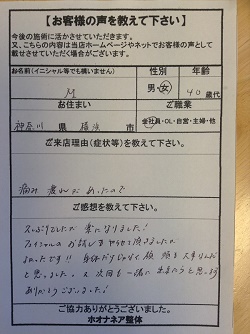 【お客様の声を教えて下さい】
今後の施術に活かさせていただきます。
又、こちらの内容は当店ホームページやネットでお客様の声として
載せさせていただく場合がございます。
お名前(イニシャル等でも構いません) 性別 年齢
M 男・女 40歳代
お住まい ご職業
神奈川 県 横浜 市 会社員・OL・自営・主婦・他
ご来店理由(症状等)を教えて下さい。
痛み 疲れがあったので
ご感想を教えて下さい。
久しぶりでしたが 楽になりました!
フェイシャルの お試しも やらせて頂きましたが
よかったです!! 身体だけじゃなく 顔 頭も 大事なんだ
と思いました。 又 次回も 一緒に お願いしようと思います
ありがとうございました!
ご協力ありがとうございました。
ホオナネア整体